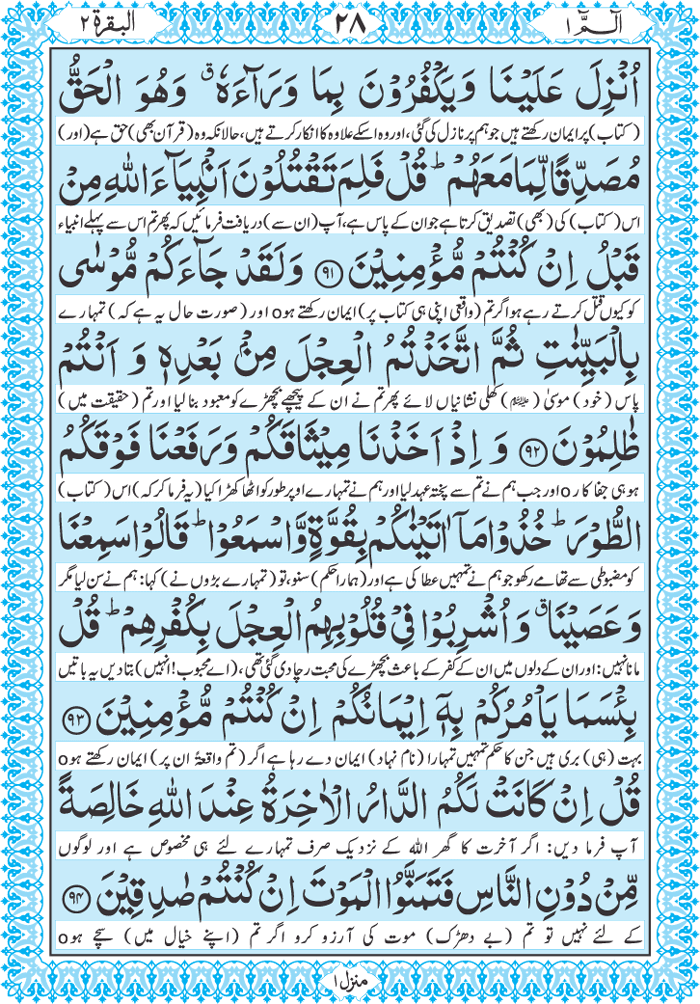 الٓمّٓ ۱ ۲۸ البقرۃ ۲
اُنْزِلَ عَلَيْنَا وَ يَكْفُرُوْنَ بِمَا وَرَآءَهٗ ۗ وَهُوَ الْحَقُّ
(کتاب) پر ایمان رکھتے ہیں جو ہم پر نازل کی گئی، اور وہ اسکے علاوہ کا انکار کرتے ہیں، حالانکہ وہ (قرآن بھی) حق ہے (اور)
مُصَدِّقًا لِّمَا مَعَهُمْ ؕ قُلْ فَلِمَ تَقْتُلُوْنَ اَنْۢبِيَآءَ اللّٰهِ مِنْ
اس (کتاب) کی (بھی) تصدیق کرتا ہے جو ان کے پاس ہے، آپ (ان سے) دریافت فرمائیں کہ پھر تم اس سے پہلے انبیاء
قَبْلُ اِنْ كُنْتُمْ مُّؤْمِنِيْنَ ۝۹۱ وَلَقَدْ جَآءَكُمْ مُّوْسٰى
کو کیوں قتل کرتے رہے ہو اگر تم (واقعی اپنی ہی کتاب پر) ایمان رکھتے ہوo اور (صورت حال یہ ہے کہ) تمہارے
بِالْبَيِّنٰتِ ثُمَّ اتَّخَذْتُمُ الْعِجْلَ مِنْۢ بَعْدِهٖ وَ اَنْتُمْ
پاس (خود) موسیٰ (علیہ السلام) کھلی نشانیاں لائے پھر تم نے ان کے پیچھے بچھڑے کو معبود بنا لیا اور تم (حقیقت میں)
ظٰلِمُوْنَ ۝۹۲ وَ اِذْ اَخَذْنَا مِيْثَاقَكُمْ وَرَفَعْنَا فَوْقَكُمُ
ہو ہی جفا کارo اور جب ہم نے تم سے پختہ عہد لیا اور ہم نے تمہارے اوپر طور کو اٹھا کھڑا کیا (یہ فرما کر کہ) اس (کتاب)
الطُّوْرَ ؕ خُذُوْا مَاۤ اٰتَيْنٰكُمْ بِقُوَّةٍ وَّاسْمَعُوْا ؕ قَالُوْا سَمِعْنَا
کو مضبوطی سے تھامے رکھو جو ہم نے تمہیں عطا کی ہے اور (ہمارا حکم) سنو، تو (تمہارے بڑوں نے) کہا: ہم نے سن لیا مگر
وَ عَصَيْنَا ۗ وَ اُشْرِبُوْا فِيْ قُلُوْبِهِمُ الْعِجْلَ بِكُفْرِهِمْ ؕ قُلْ
مانا نہیں: اور ان کے دلوں میں ان کے کفر کے باعث بچھڑے کی محبت رچا دی گئی تھی، (اے محبوب! انہیں) بتا دیں یہ باتیں
بِئْسَمَا يَاْمُرُكُمْ بِهٖۤ اِيْمَانُكُمْ اِنْ كُنْتُمْ مُّؤْمِنِيْنَ ۝۹۳
بہت (ہی) بری ہیں جن کا حکم تمہیں تمہارا (نام نہاد) ایمان دے رہا ہے اگر (تم واقعۃً ان پر) ایمان رکھتے ہوo
قُلْ اِنْ كَانَتْ لَكُمُ الدَّارُ الْاٰخِرَةُ عِنْدَ اللّٰهِ خَالِصَةً
آپ فرما دیں: اگر آخرت کا گھر اللہ کے نزدیک صرف تمہارے لئے ہی مخصوص ہے اور لوگوں
مِّنْ دُوْنِ النَّاسِ فَتَمَنَّوُا الْمَوْتَ اِنْ كُنْتُمْ صٰدِقِيْنَ ۝۹۴
کے لئے نہیں تو تم (بے دھڑک) موت کی آرزو کرو اگر تم (اپنے خیال میں) سچے ہوo
منزل ۱